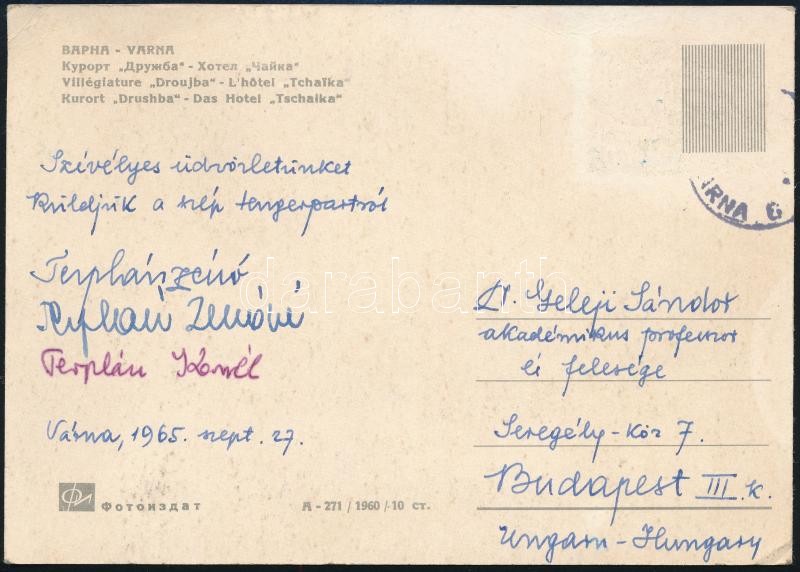 ВАРНА - VARNA
Курорт „Дружба“ - Хотел „Чайка“
Villégiature „Droujba“ - L'hôtel „Tchaïka“
Kurort „Drushba“ - Das Hotel „Tschaika“
VARNA
Szívélyes üdvözletünket
küldjük a szép tengerpartról
Terplán Zénó
Terplán Zénóné
Terplán Kornél
Várna, 1965. szept. 27.
Dr. Geleji Sándor
akadémikus professzor
és felesége
Seregély-köz 7.
Budapest III. k.
Ungarn-Hungary
Фотоиздат
А - 271 / 1960 / 10 ст.
darabanth